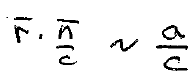 r̅ · n̅/c ~ a/c